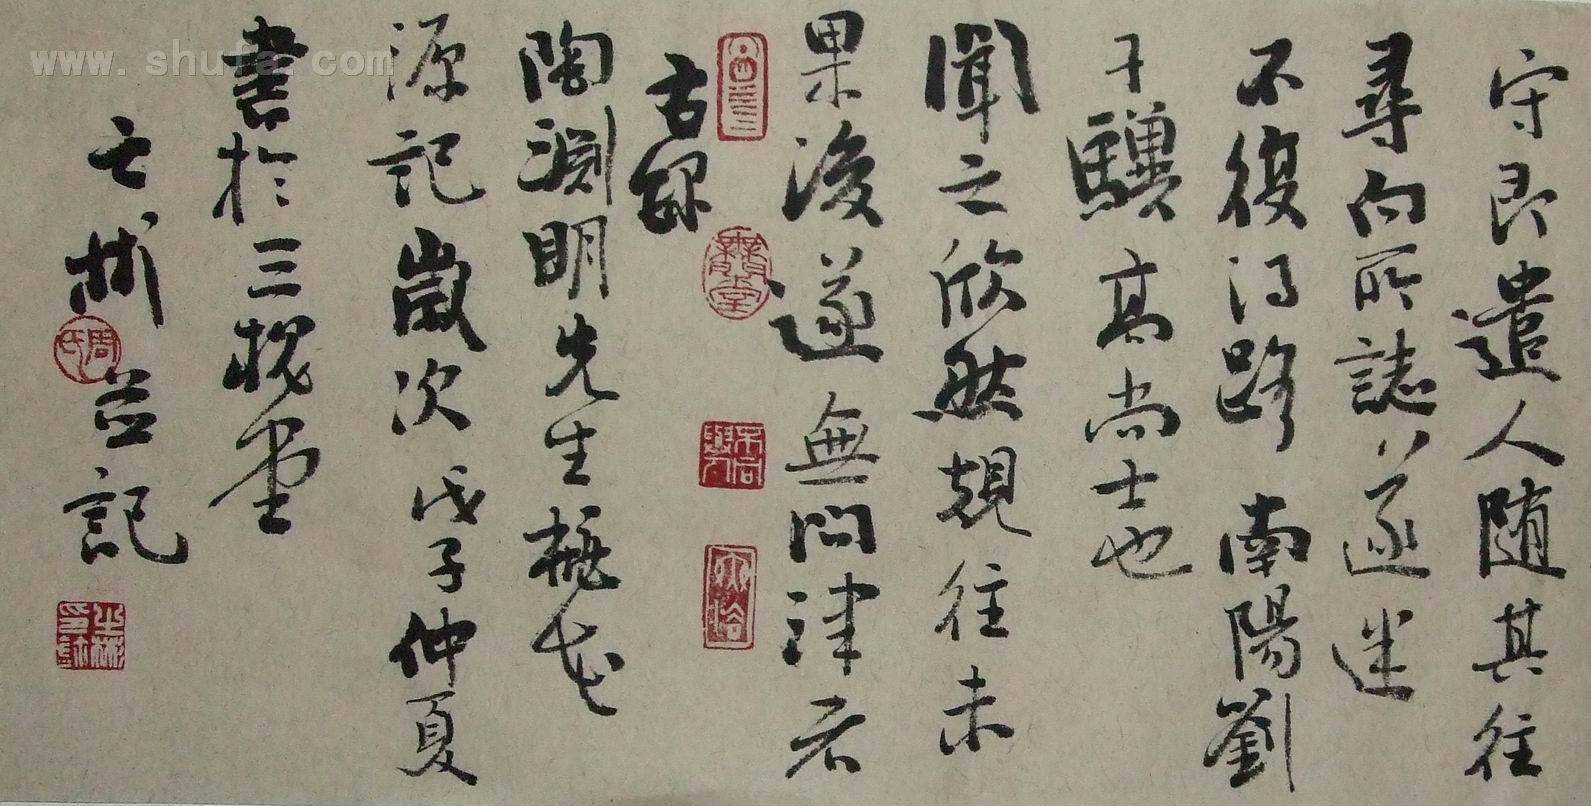 守即遣人随其往
尋向所誌遂迷
不復得路南陽劉
子驥高尚士也
聞之欣然規往未
果後遂無問津者
右錄
陶淵明先生桃花
源記歲次戊子仲夏
書於三槐堂
之彬並記
周氏
www.shufa.com